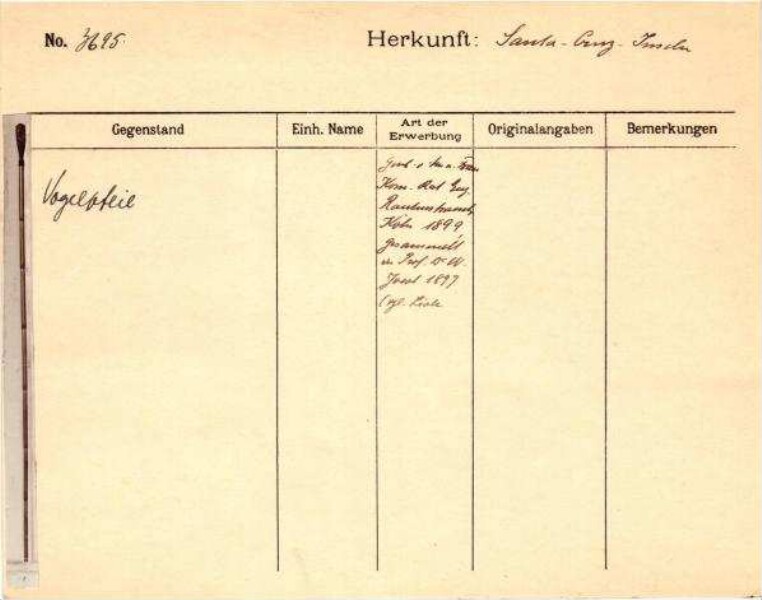 No. 3695. Herkunft: Santa-Cruz-Inseln
Gegenstand Einh. Name Art der Erwerbung Originalangaben Bemerkungen
Vogelpfeil
Kom. Rat Eug.
Rautenstrauch,
Köln 1899
gesammelt
Prof. Dr W.
Joest 1897
(vgl.